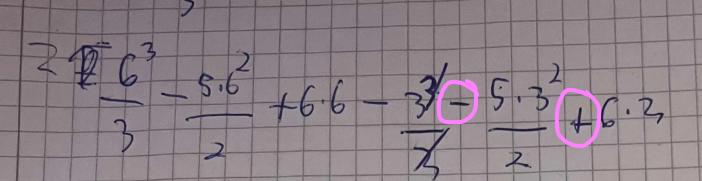 2 6³/3 - 5·6²/2 + 6·6 - 3³/3 - 5·3²/2 + 6·3